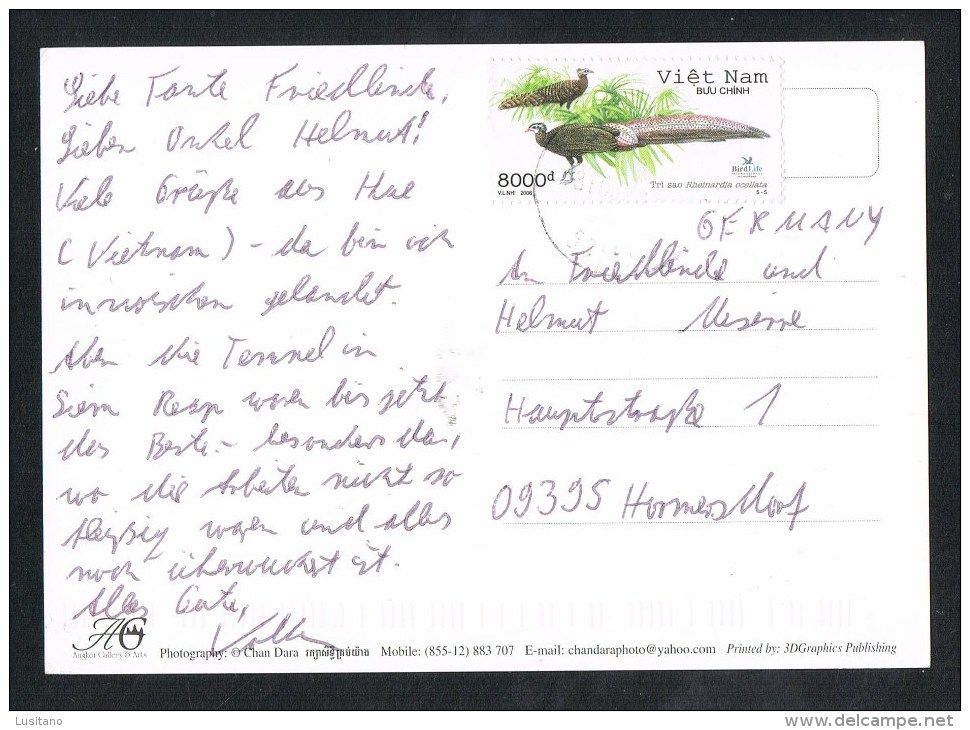 Liebe Tante Friedlinde,
Lieben Onkel Helmut!
Viele Grüße aus Hue
(Vietnam) – da bin ich
inzwischen gelandet.
Aber die Tempel in
Siem Reap waren bis jetzt
das Beste – besonders da,
wo die Arbeiten nicht so
fleißig waren und alles
noch überwuchert ist.
Alles Gute,
Việt Nam
BƯU CHÍNH
8000đ
V.L. NH 2006
BirdLife
INTERNATIONAL
Trĩ sao Rheinardia ocellata
5-5
GERMANY
An Friedlinde und
Helmut
Hauptstraße 1
09395 Hormersdorf
AG
Angkor Gallery & Arts
Photography: © Chan Dara រក្សាសិទ្ធិគ្រប់យ៉ាង Mobile: (855-12) 883 707 E-mail: chandaraphoto@yahoo.com Printed by: 3DGraphics Publishing
Lusitano
www.delcampe.net